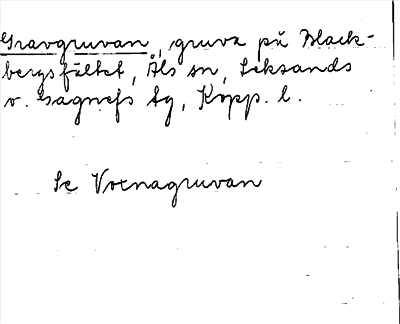 Gravgruvan, gruva på Black-
bergsfältet, Åls sn, Leksands
o. Gagnefs tg, Kopp. l.
Se Voxnagruvan